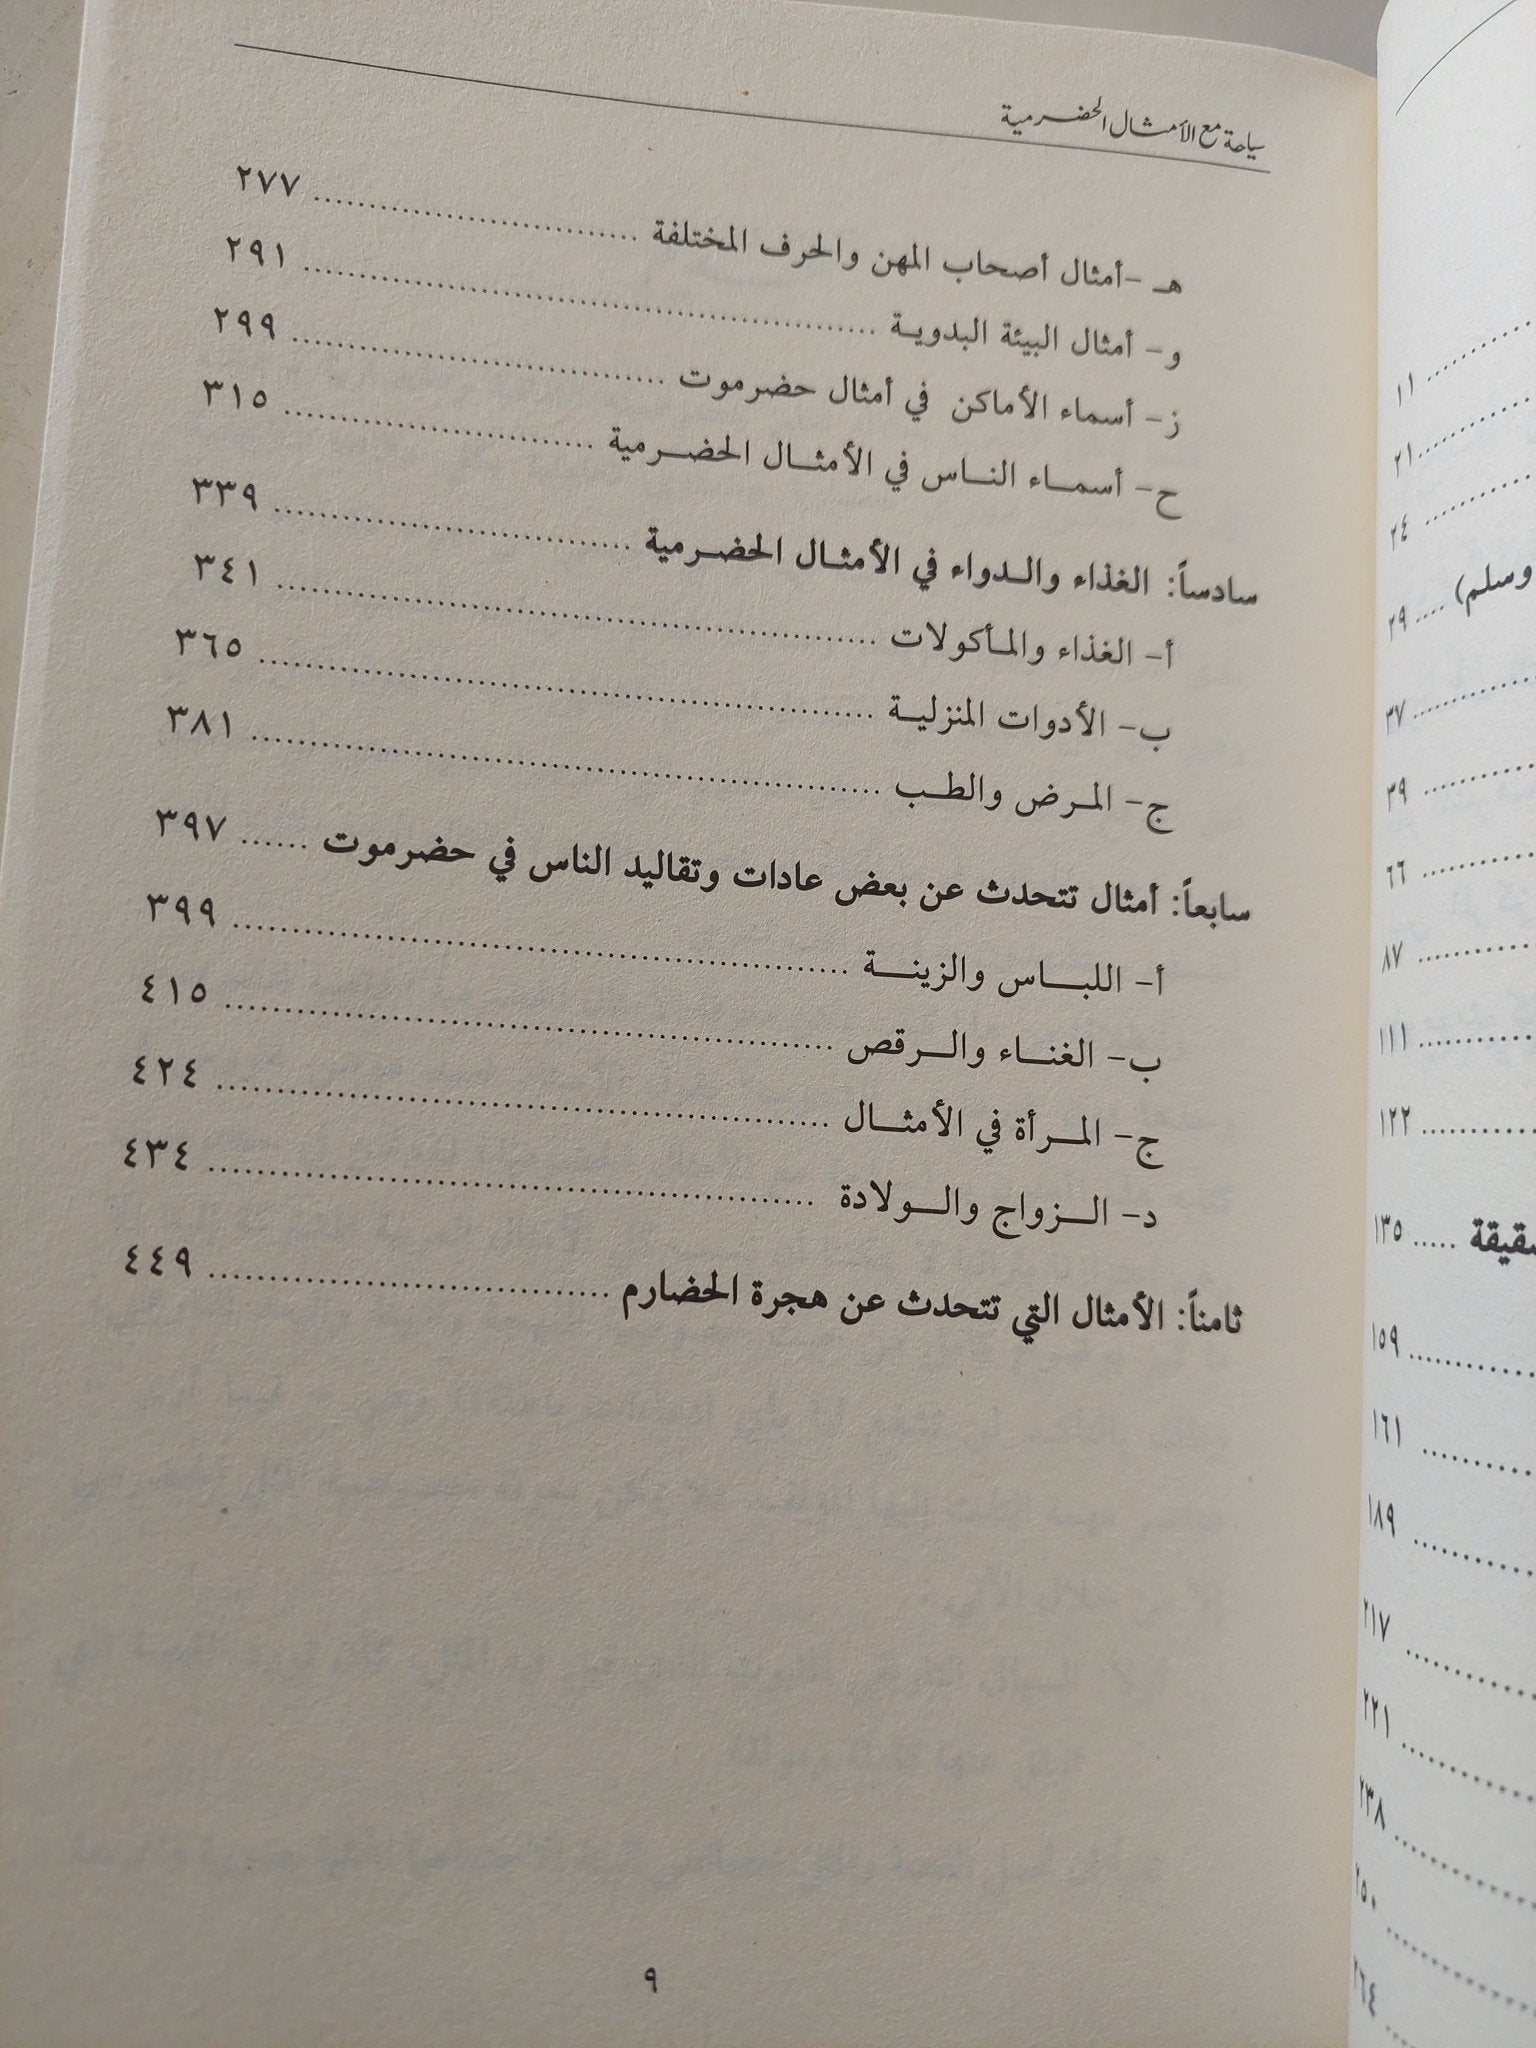 سياحة مع الأمثال الحضرمية
هـ -أمثال أصحاب المهن والحرف المختلفة ........ ٢٧٧
و- أمثال البيئة البدوية ........ ٢٩١
ز- أسماء الأماكن في أمثال حضرموت ........ ٢٩٩
ح- أسماء الناس في الأمثال الحضرمية ........ ٣١٥
سادساً: الغذاء والدواء في الأمثال الحضرمية ........ ٣٣٩
أ- الغذاء والمأكولات ........ ٣٤١
ب- الأدوات المنزلية ........ ٣٦٥
ج- المرض والطب ........ ٣٨١
سابعاً: أمثال تتحدث عن بعض عادات وتقاليد الناس في حضرموت ...... ٣٩٧
أ- اللباس والزينة ........ ٣٩٩
ب- الغناء والرقص ........ ٤١٥
ج- المرأة في الأمثال ........ ٤٢٤
د- الزواج والولادة ........ ٤٣٤
ثامناً: الأمثال التي تتحدث عن هجرة الحضارم ........ ٤٤٩
٩
........ ١١
........ ٢١
........ ٢٤
وسلم) .... ٢٩
........ ٣٧
........ ٣٩
........ ٦٦
........ ٨٧
........ ١١١
........ ١٢٢
..... ١٣٥
........ ١٥٩
........ ١٦١
........ ١٨٩
........ ٢١٧
........ ٢٢١
........ ٢٣٨
........ ٢٥٠
........ ٢٦٤